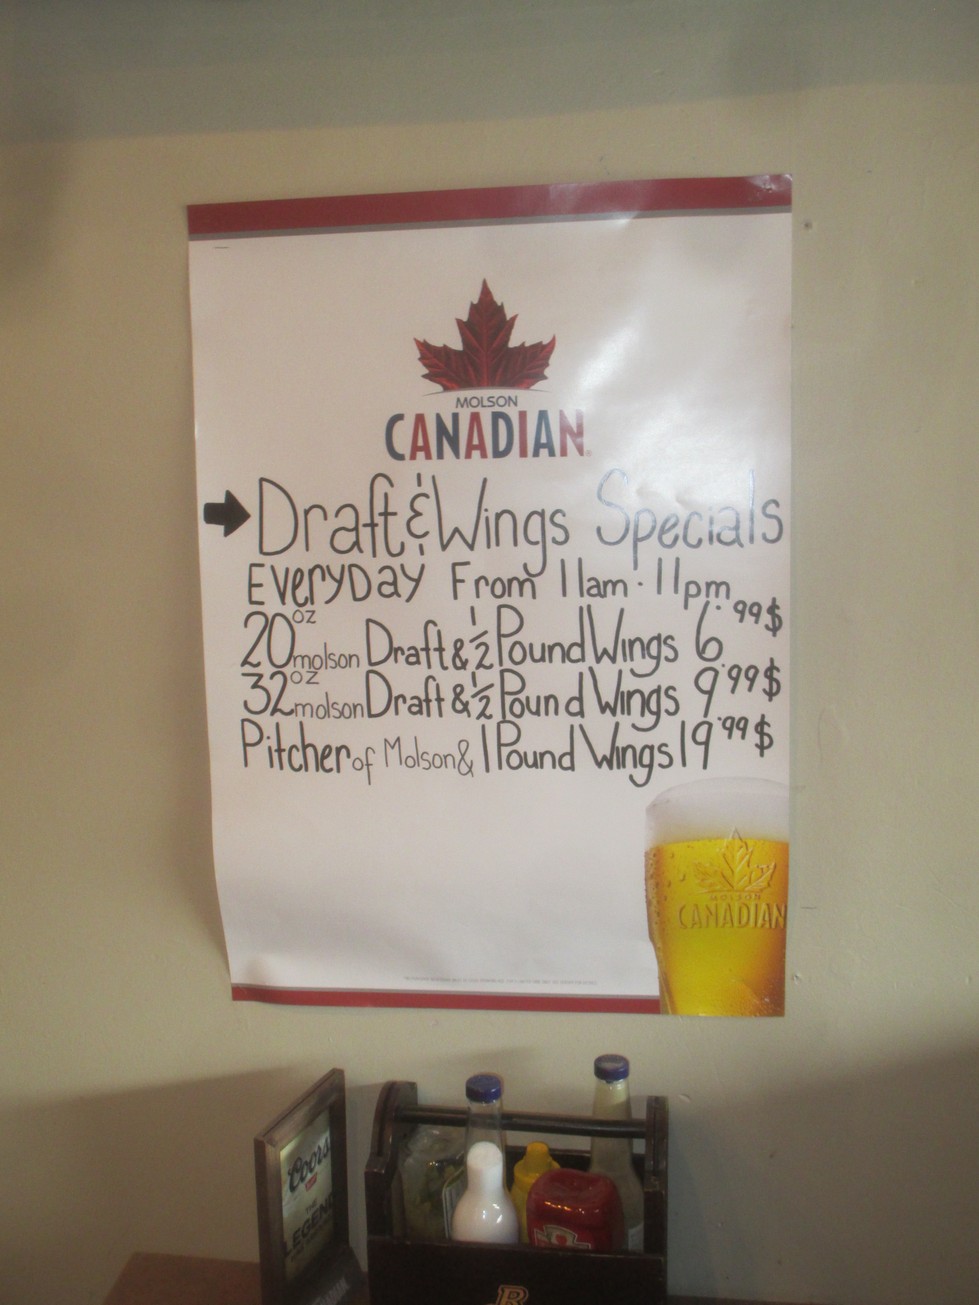 MOLSON
CANADIAN
Draft & Wings Specials
EVERYDAY From 11am - 11pm
20oz molson Draft & 1/2 Pound Wings 6.99$
32oz molson Draft & 1/2 Pound Wings 9.99$
Pitcher of Molson & 1 Pound Wings 19.99$
MOLSON
CANADIAN
Coors
THE
LEGEND
R